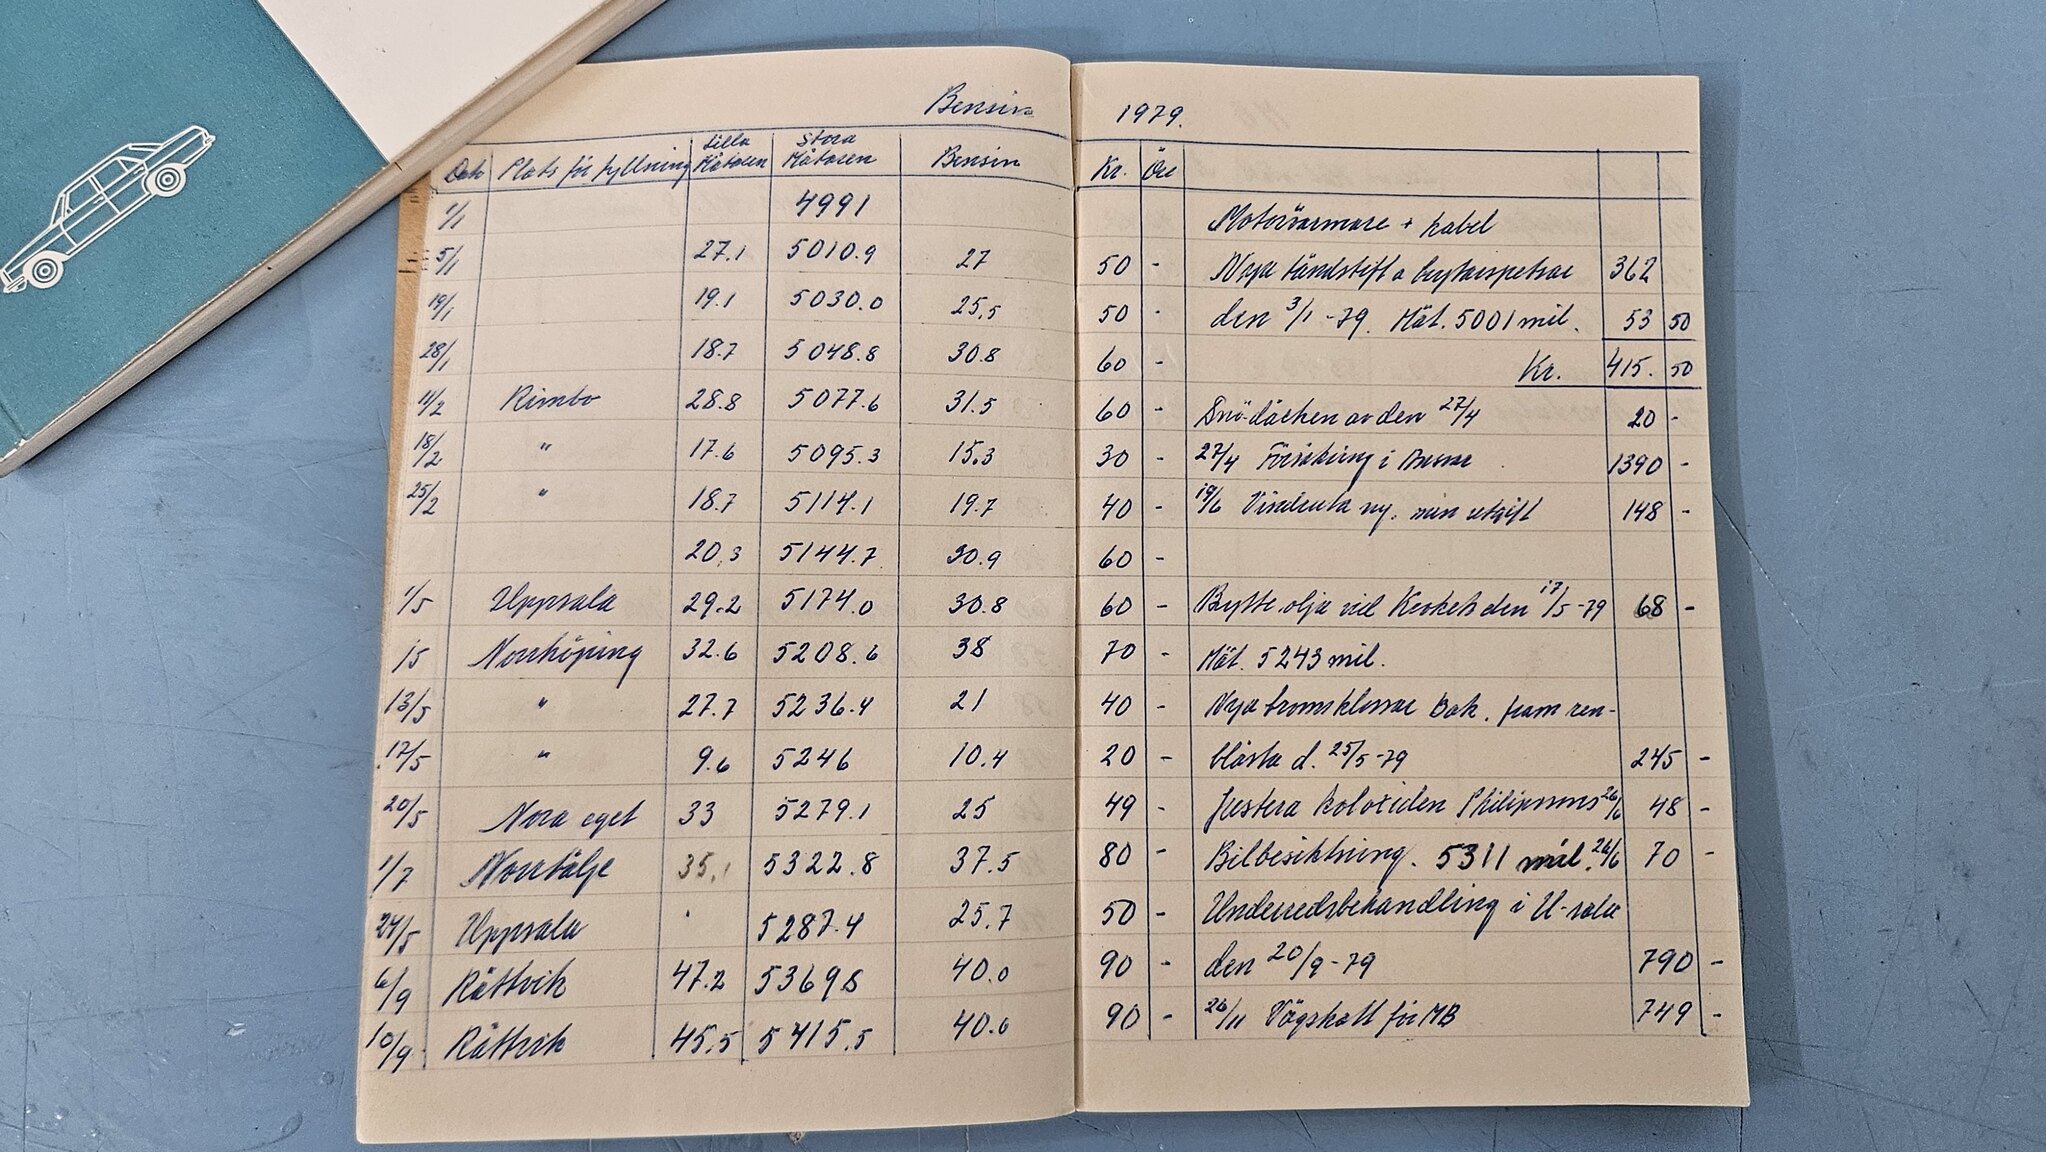 Bensin 1979.
Dat Plats för fyllning Lilla Mätaren Stora Mätaren Bensin Kr. Öre
1/1 4991 Motorvärmare + kabel
5/1 27.1 5010.9 27 50 - Nya tändstift o brytarspetsar 362
14/1 19.1 5030.0 25.5 50 - den 3/1 -79. Mät. 5001 mil. 53 50
28/1 18.7 5048.8 30.8 60 - Kr. 415. 50
11/2 Rimbo 28.8 5077.6 31.5 60 - Snödäcken av den 27/4 20 -
18/2 " 17.6 5095.3 15.3 30 - 27/4 Försäkring i 1390 -
25/2 " 18.7 5114.1 19.7 40 - 19/6 Vindruta ny. min utgift 148 -
20.3 5144.7 30.9 60 -
1/5 Uppsala 29.2 5174.0 30.8 60 - Bytte olja vid den 17/5 -79 68 -
/5 Norrköping 32.6 5208.6 38 70 - Mät. 5243 mil.
13/5 " 27.7 5236.4 21 40 - Nya bromsklossar Bak. fram ren-
17/5 " 9.6 5246 10.4 20 - blästa d. 25/5 -79 245 -
20/5 Nora eget 33 5279.1 25 49 - Justera koloxiden 26/6 48 -
1/7 Norrtälje 35.1 5322.8 37.5 80 - Bilbesiktning. 5311 mil. 26/6 70 -
24/5 Uppsala 5287.4 25.7 50 - Underredsbehandling i U-sala
6/9 Rättvik 47.2 5369 8 40.0 90 - den 20/9 -79 790 -
10/9 Rättvik 45.5 5415.5 40.6 90 - 26/11 Vägskatt för MB 749 -